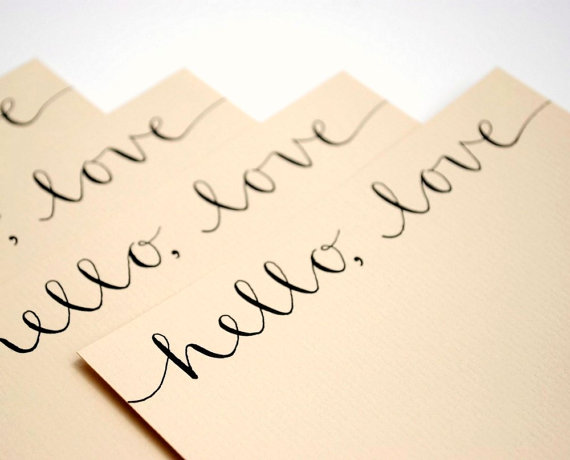 e
, love
hello, love
hello, love